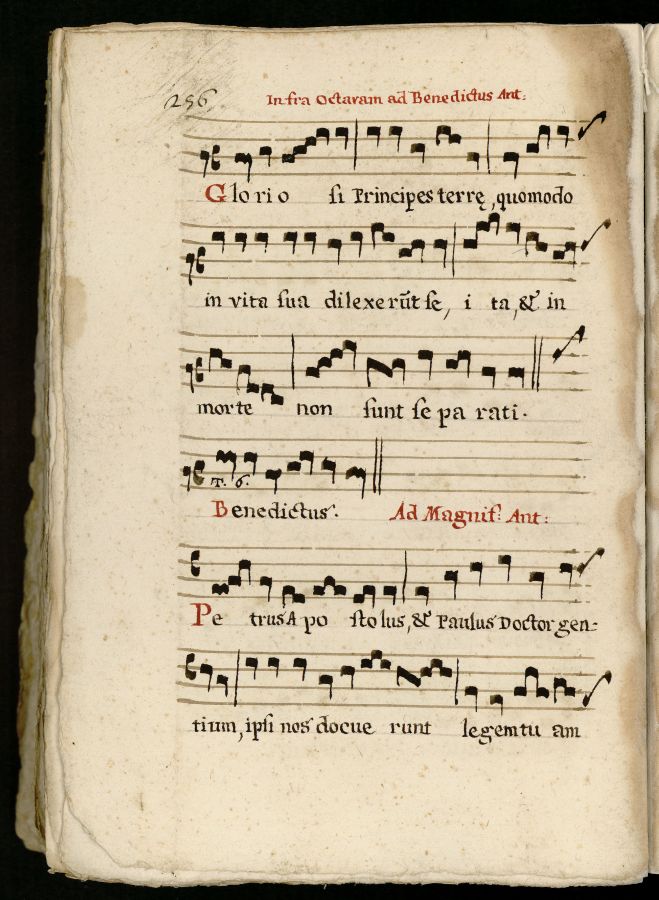 256
Infra Octavam ad Benedictus Ant:
Glorio si Principes terrę, quomodo
in vita sua dilexerūt se, i ta, & in
morte non sunt se pa rati.
T. 6.
Benedictus. Ad Magnif: Ant:
Pe trus A po stolus, & Paulus Doctor gen=
tium, ipsi nos docue runt legem tu am